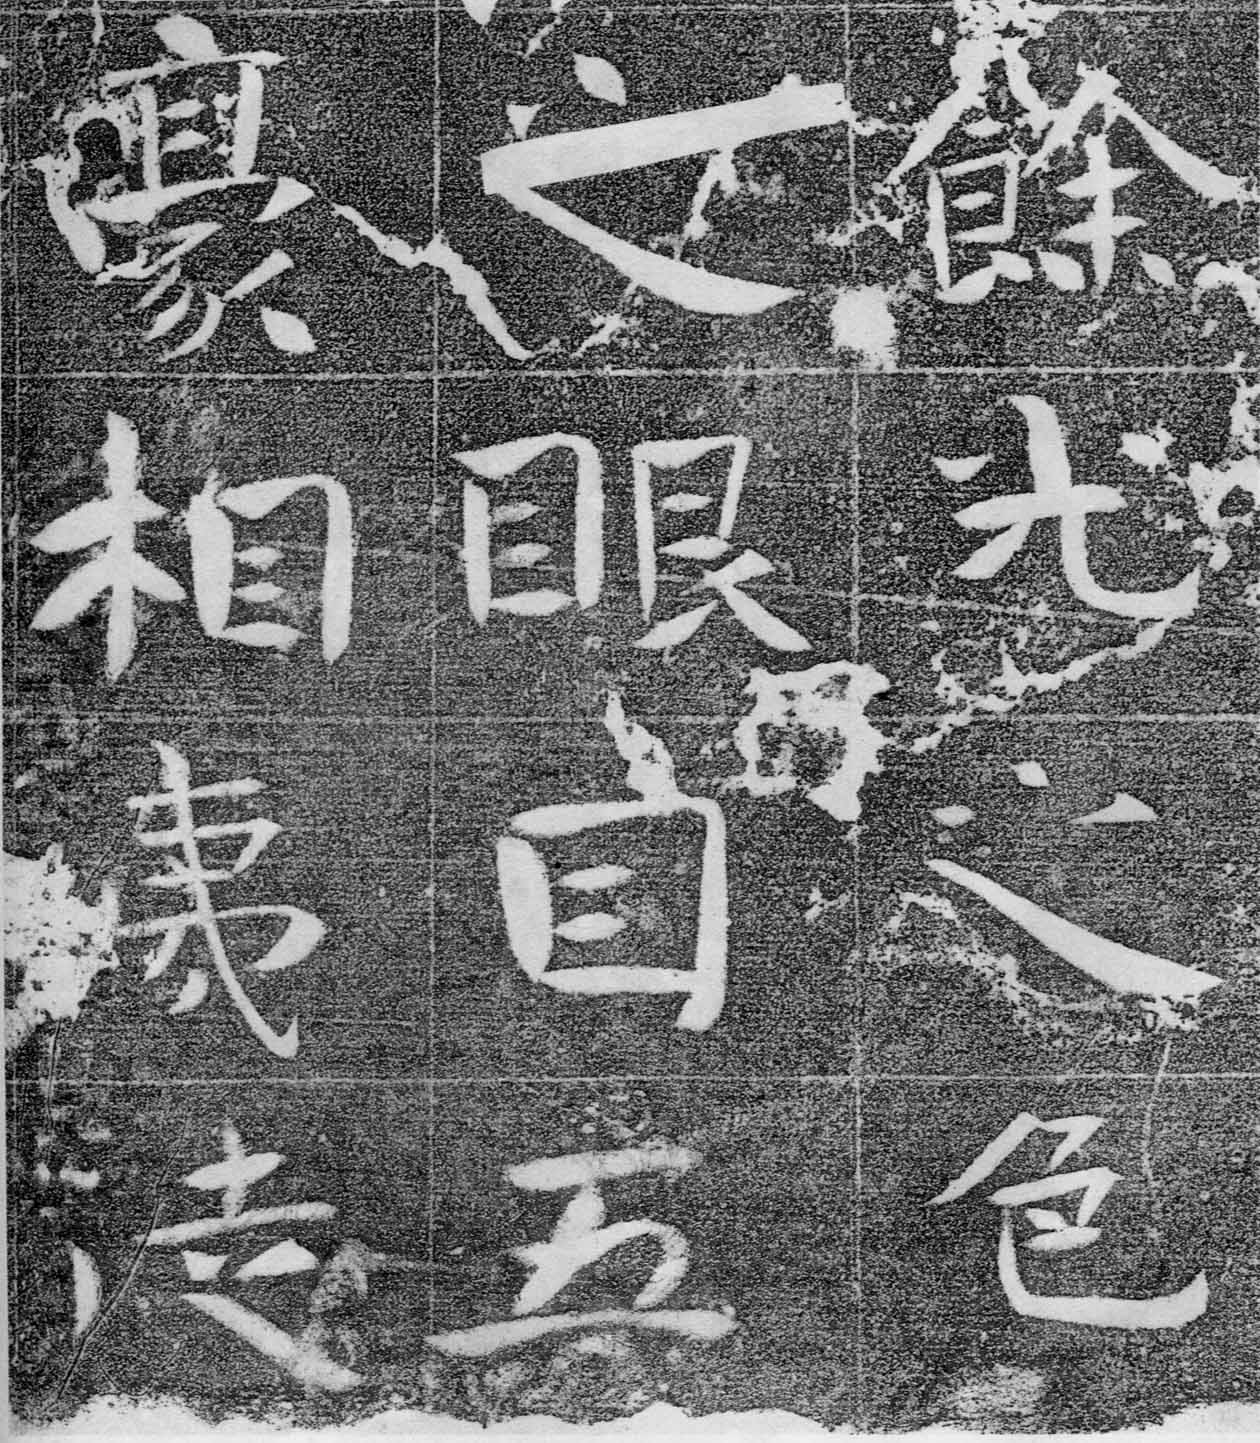 餘光之色
之眼目五
豪相夷